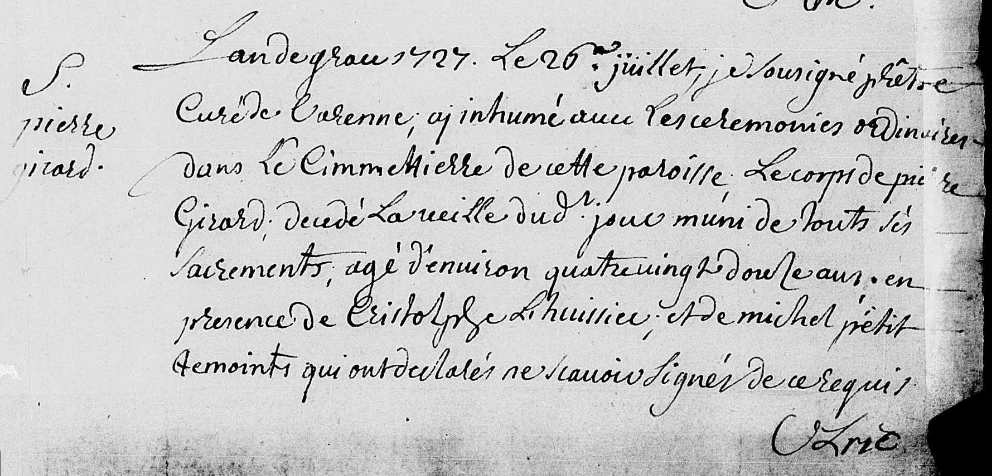 S.
pierre
girard.
Landegrau 1727. Le 26.e juillet, je sousigné prêtre
Curé de Varenne, aÿ inhumé avec Les ceremonies ordinaires
dans Le Cimmettierre de cette paroisse, Le corps de pierre
Girard, decedé La veille dud.t jour muni de touts sés
sacrements, agé d'environ quatrevingt douze ans. en
presence de Cristolphe Lhuissier, et de michel pétit
temoints qui ont declarés ne scavoir signés de ce requis